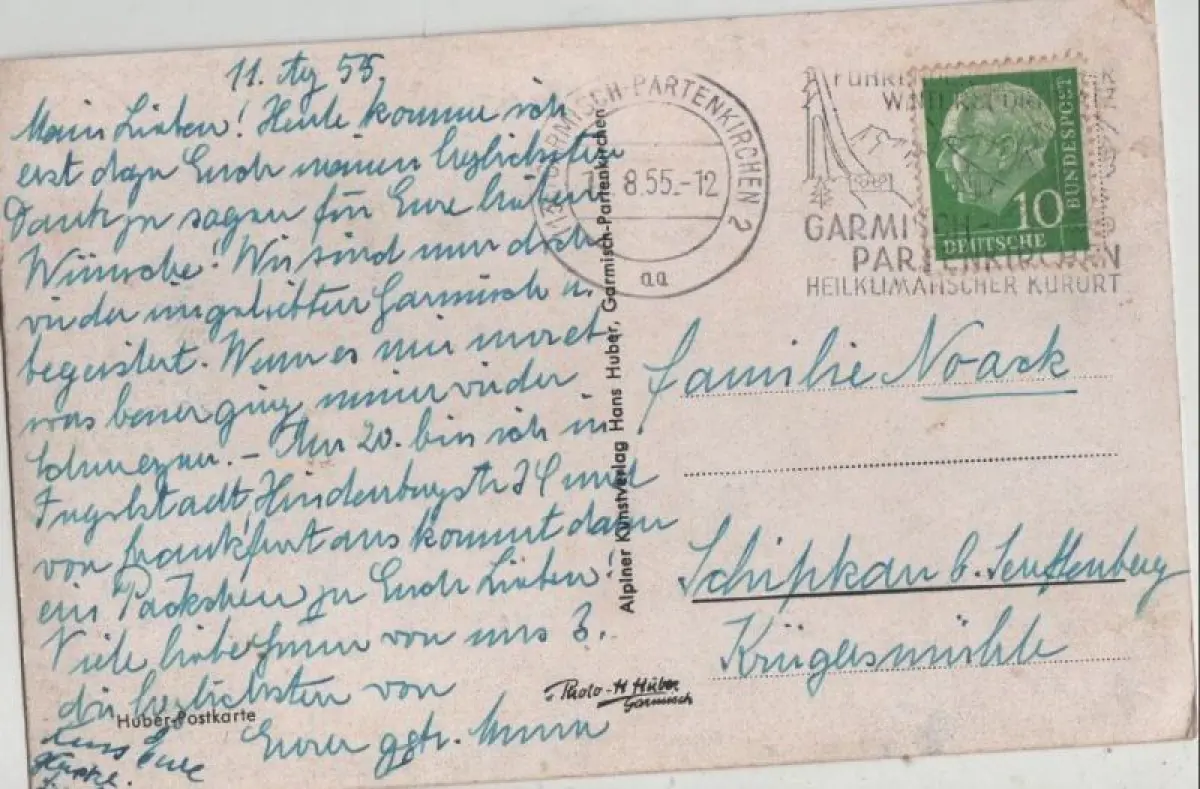 11. Aug 55.
Meine Lieben! Heute komme ich
erst dazu Euch meinen herzlichsten
Dank zu sagen für Eure lieben
Wünsche! Wir sind nun doch
wieder im geliebten Garmisch u.
begeistert. Wenn es mir
was besser ging immer wieder
Schmerzen. – Am 20. bin ich in
Ingolstadt, Hindenburgstr 34 und
von Frankfurt aus kommt dann
ein Päckchen zu Euch Lieben
Viele liebe von uns 3.
die herzlichsten von
Eurer getr.
Eure
Huber-Postkarte
Alpiner Kunstverlag Hans Huber, Garmisch-Partenkirchen
Photo-H Huber
Garmisch
GARMISCH-PARTENKIRCHEN 2
8.55.-12
aa
GARMISCH-
PARTENKIRCHEN
HEILKLIMATISCHER KURORT
10
DEUTSCHE
BUNDESPOST
Familie Noack
Schipkau b. Senftenberg
Krügersmühle